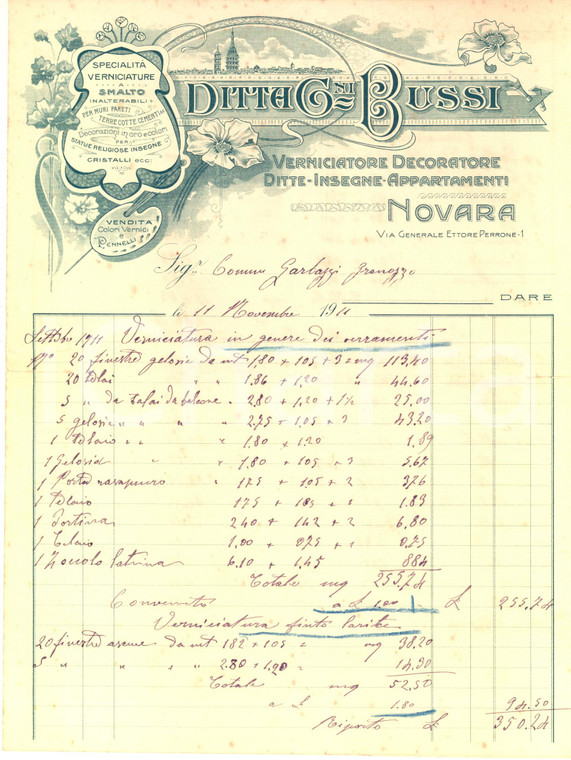 SPECIALITÀ
VERNICIATURE
A
SMALTO
INALTERABILI
PER MURI PARETI
TERRE COTTE CEMENTI ecc
Decorazioni in oro e colori
PER
STATUE RELIGIOSE INSEGNE
CRISTALLI ecc:
VENDITA
Colori Vernici
e
PENNELLI
DITTA Gni BUSSI
VERNICIATORE DECORATORE
DITTE-INSEGNE-APPARTAMENTI
NOVARA
VIA GENERALE ETTORE PERRONE-1
Sig.r Comm Garlazzi
DARE
li 11 Novembre 1911
Settbre 1911 Verniciatura in genere dei serramenti
No 20 finestre gelosie da mt 1,80 + 105 + 3 = mq 113,40
20 telai " " 1.86 + 1,20 " 44,60
5 " da balcone " 2,80 + 1,20 + 1½ 25,00
5 gelosie " " " 2,75 + 1,05 + 3 43,20
1 telaio " " 1.80 + 1.20 1.89
1 Gelosia " 1,80 + 105 + 3 5.67
1 Porta " 175 + 105 + 2 376
1 Telaio 175 + 105 + 1 1.83
1 Portina 240 + 142 + 2 6,80
1 Telaio 1.00 + 075 + 1 0.75
1 Zoccolo latrina 6.10 + 1.45 884
Totale mq 255,74
Convenuto a £ 1.00 £ 255.74
Verniciatura finto larice
20 finestre da mt 182 + 105 = mq 38.20
5 " " " 2.80 + 1.20 = 14.30
Totale mq 52.50
a £ 1.80 94.50
Riporto £ 350.24